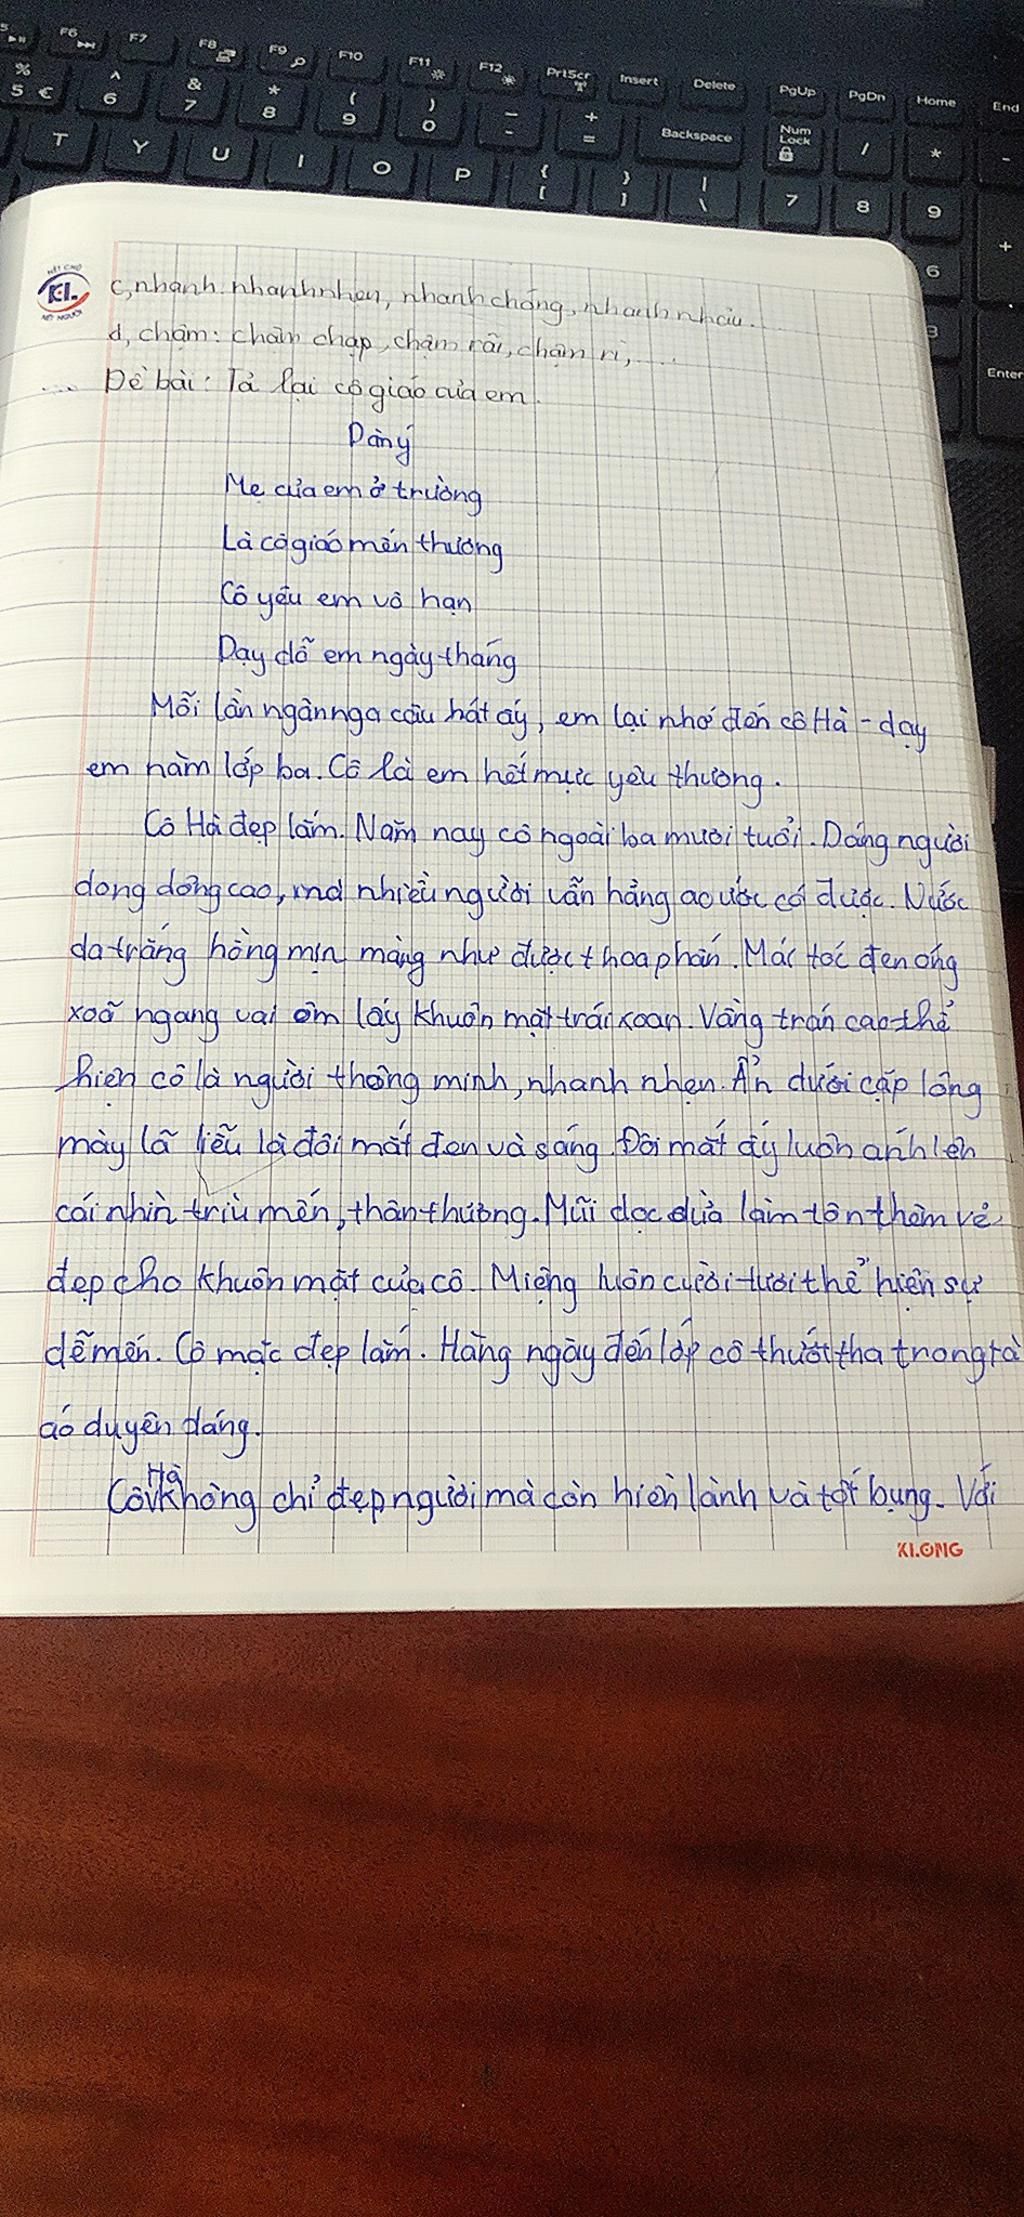 F6 F7 F8 F9 F10 F11 F12 PrtScr Insert Delete PgUp PgDn Home End
% 5 € ^ 6 & 7 * 8 ( 9 ) 0 _ - + = Backspace Num Lock / * -
T Y U I O P { [ } ] | \ 7 8 9 +
6
3
Enter
NÉT CHỮ
KL
NẾT NGƯỜI
c, nhanh: nhanh nhẹn, nhanh chóng, nhanh nhảu...
d, chậm: chậm chạp, chậm rãi, chậm rì, ....
.... Đề bài: Tả lại cô giáo của em.
Dàn ý
Mẹ của em ở trường
Là cô giáo mến thương
Cô yêu em vô hạn
Dạy dỗ em ngày tháng
Mỗi lần ngân nga câu hát ấy, em lại nhớ đến cô Hà - dạy
em năm lớp ba. Cô là em hết mực yêu thương.
Cô Hà đẹp lắm. Năm nay cô ngoài ba mươi tuổi. Dáng người
dong dỏng cao, mà nhiều người vẫn hằng ao ước có được. Nước
da trắng hồng mịn màng như được thoa phấn. Mái tóc đen óng
xoã ngang vai ôm lấy khuôn mặt trái xoan. Vầng trán cao thể
hiện cô là người thông minh, nhanh nhẹn. Ẩn dưới cặp lông
mày lã liễu là đôi mắt đen và sáng. Đôi mắt ấy luôn ánh lên
cái nhìn trìu mến, thân thương. Mũi dọc dừa làm tôn thêm vẻ
đẹp cho khuôn mặt của cô. Miệng luôn cười tươi thể hiện sự
dễ mến. Cô mặc đẹp lắm. Hàng ngày đến lớp cô thướt tha trong tà
áo duyên dáng.
Cô Hà không chỉ đẹp người mà còn hiền lành và tốt bụng. Với
KLONG